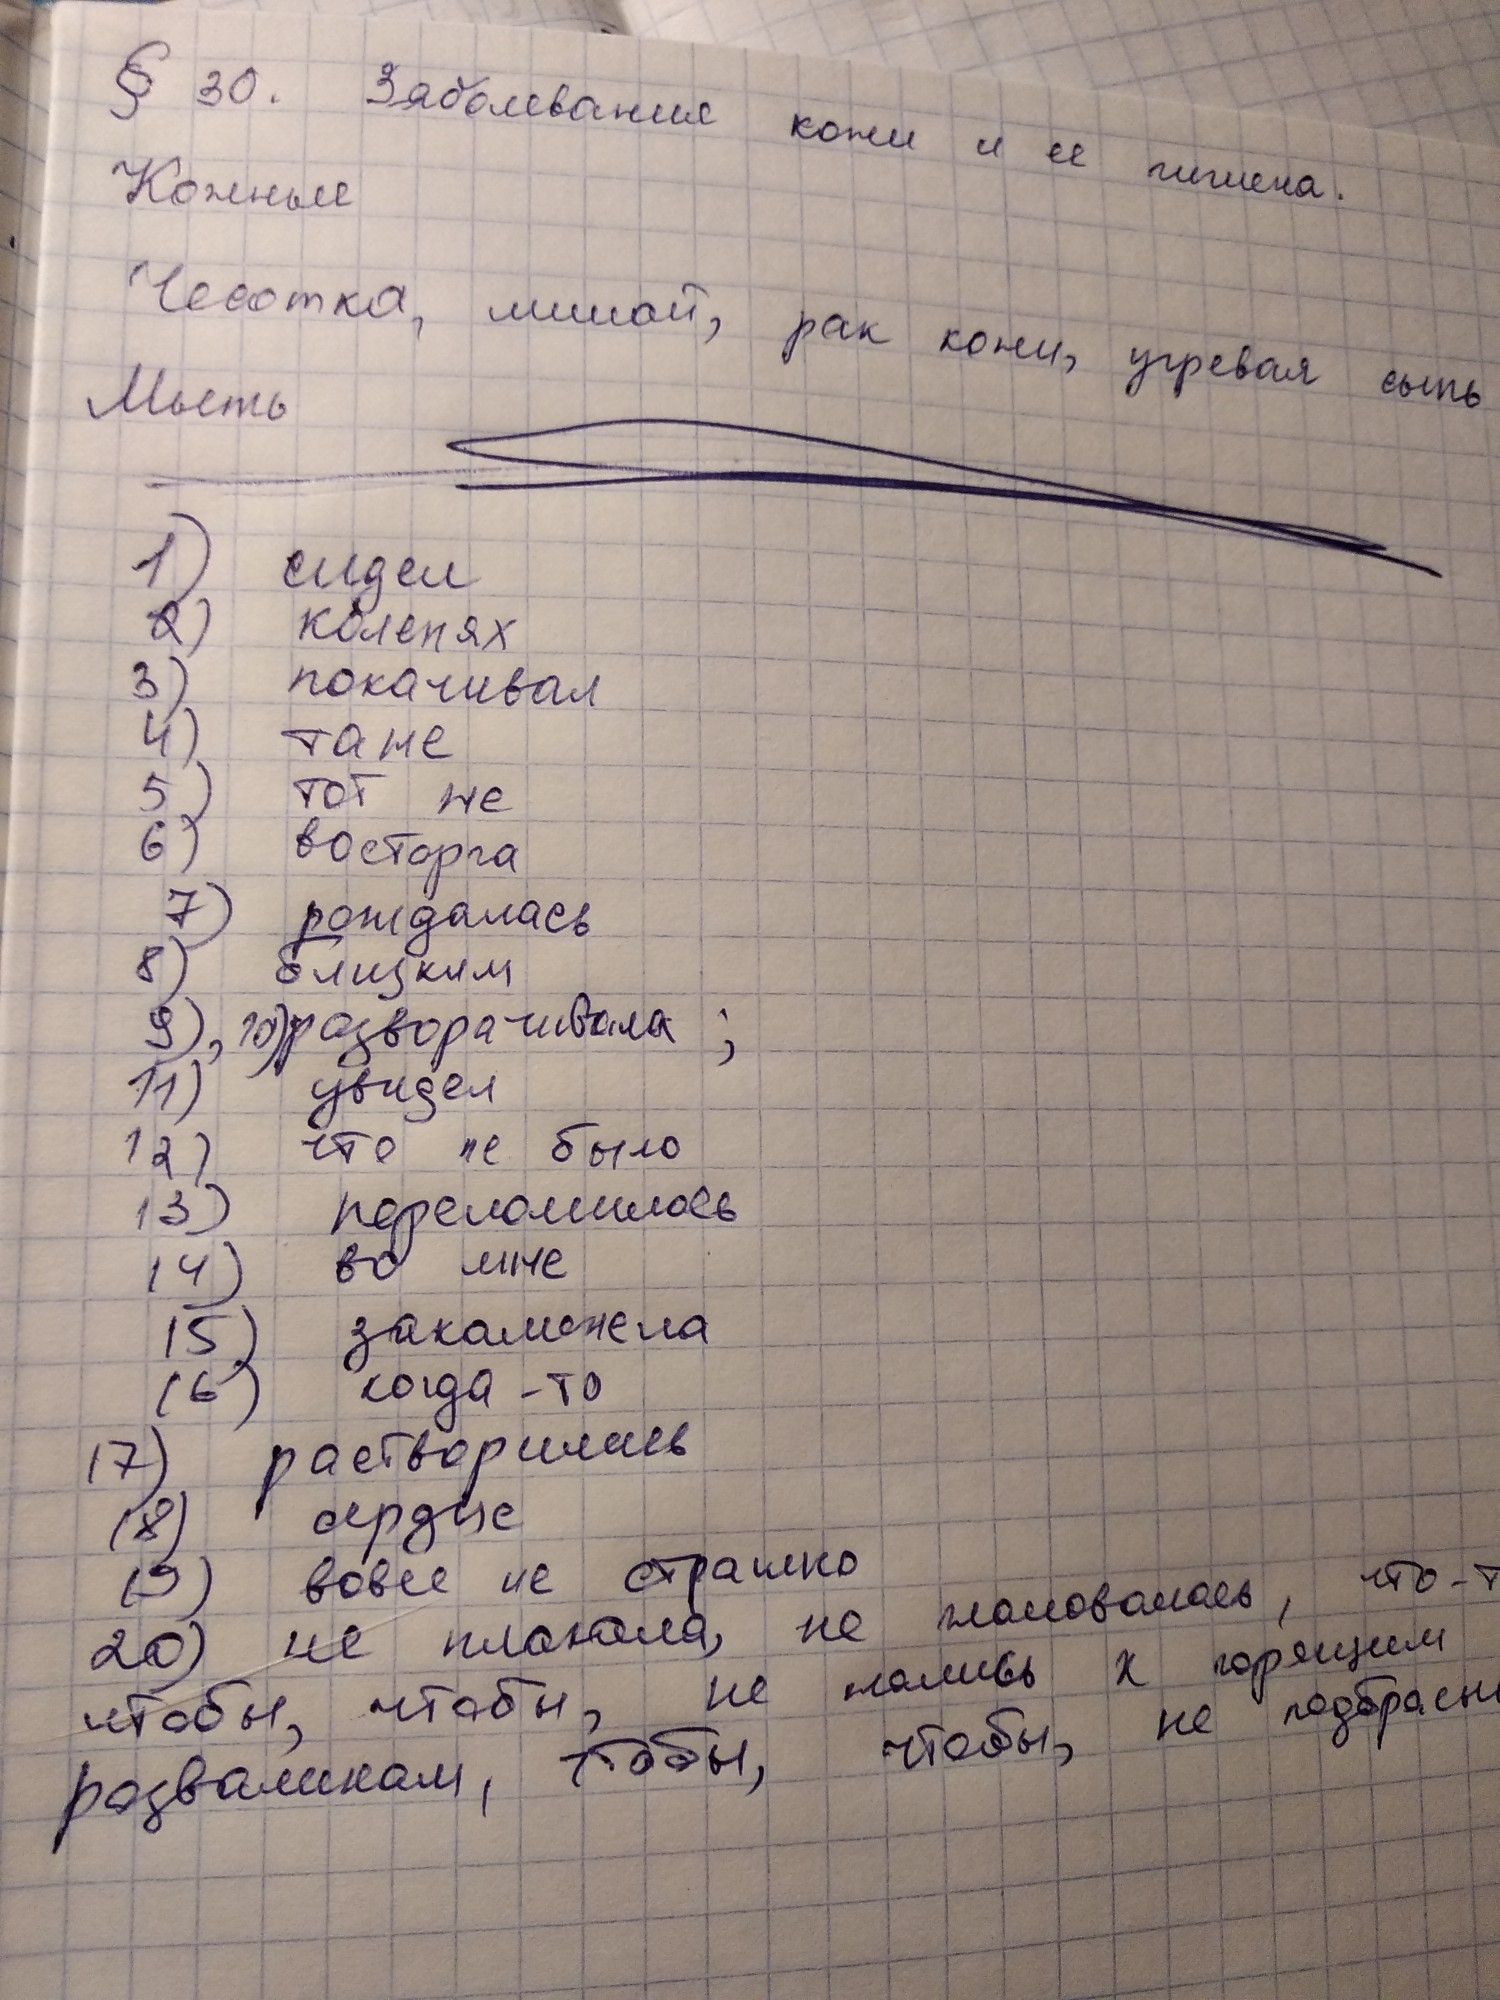 § 30. Заболевания кожи и ее гигиена.
Кожные
Чесотка, лишай, рак кожи, угревая сыпь
Мыть
1) сидел
2) коленях
3) покачивал
4) та же
5) тот же
6) восторга
7) рождалась
8) близким
9), 10) разворачивала ;
11) увидел
12) что не было
13) переломилось
14) во мне
15) закаменела
16) когда-то
17) растворилась
18) сердце
19) вовсе не страшно
20) не плакала, не жаловалась, что-т
чтобы, чтобы, не жались к горящим
развалинам, чтобы, чтобы, не подбрасы